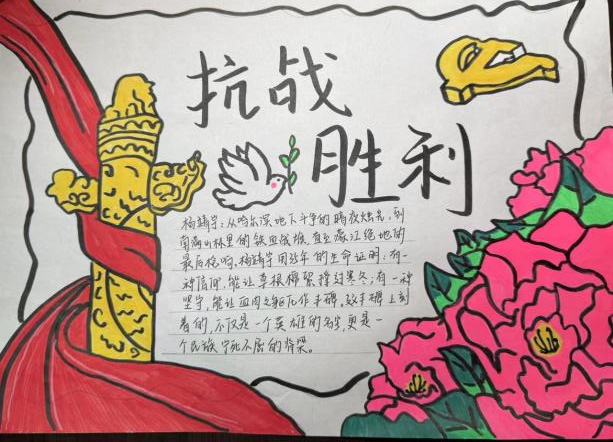 抗战
胜利
杨靖宇:从哈尔滨地下斗争的暗夜烛光,到
南满山林里的铁血战旗,直至濛江绝地的
最后枪响,杨靖宇用35年的生命证明:有一
种信仰,能让草根棉絮撑过寒冬;有一种
坚守,能让血肉之躯化作丰碑,这丰碑上刻
着的,不仅是一个英雄的名字,更是一
个民族宁死不屈的脊梁。